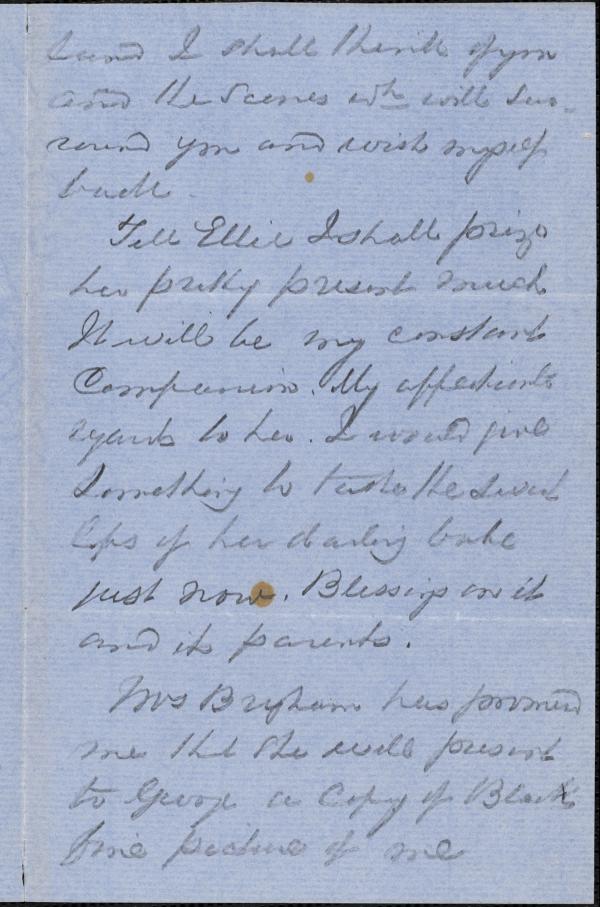 land I shall think of you
and the Scenes wh will sur-
round you and wish myself
back.
Tell Ellie I shall prize
her pretty present much
It will be my constant
Companion. My affectionate
regards to her. I would give
Something to taste the sweet
lips of her darling babe
just now. Blessings on it
and its parents.
Mrs Brigham has promised
me that she will present
to George a Copy of Black's
fine picture of me